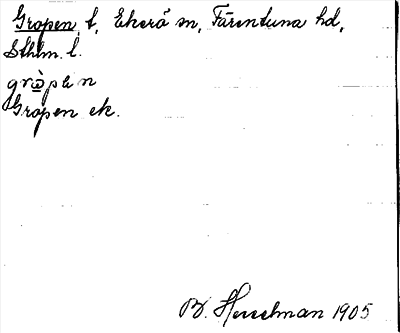 Gropen, t, Ekerö sn, Färentuna hd,
Sthlm. l.
grὼpεn
Gropen ek.
B. Hesselman 1905